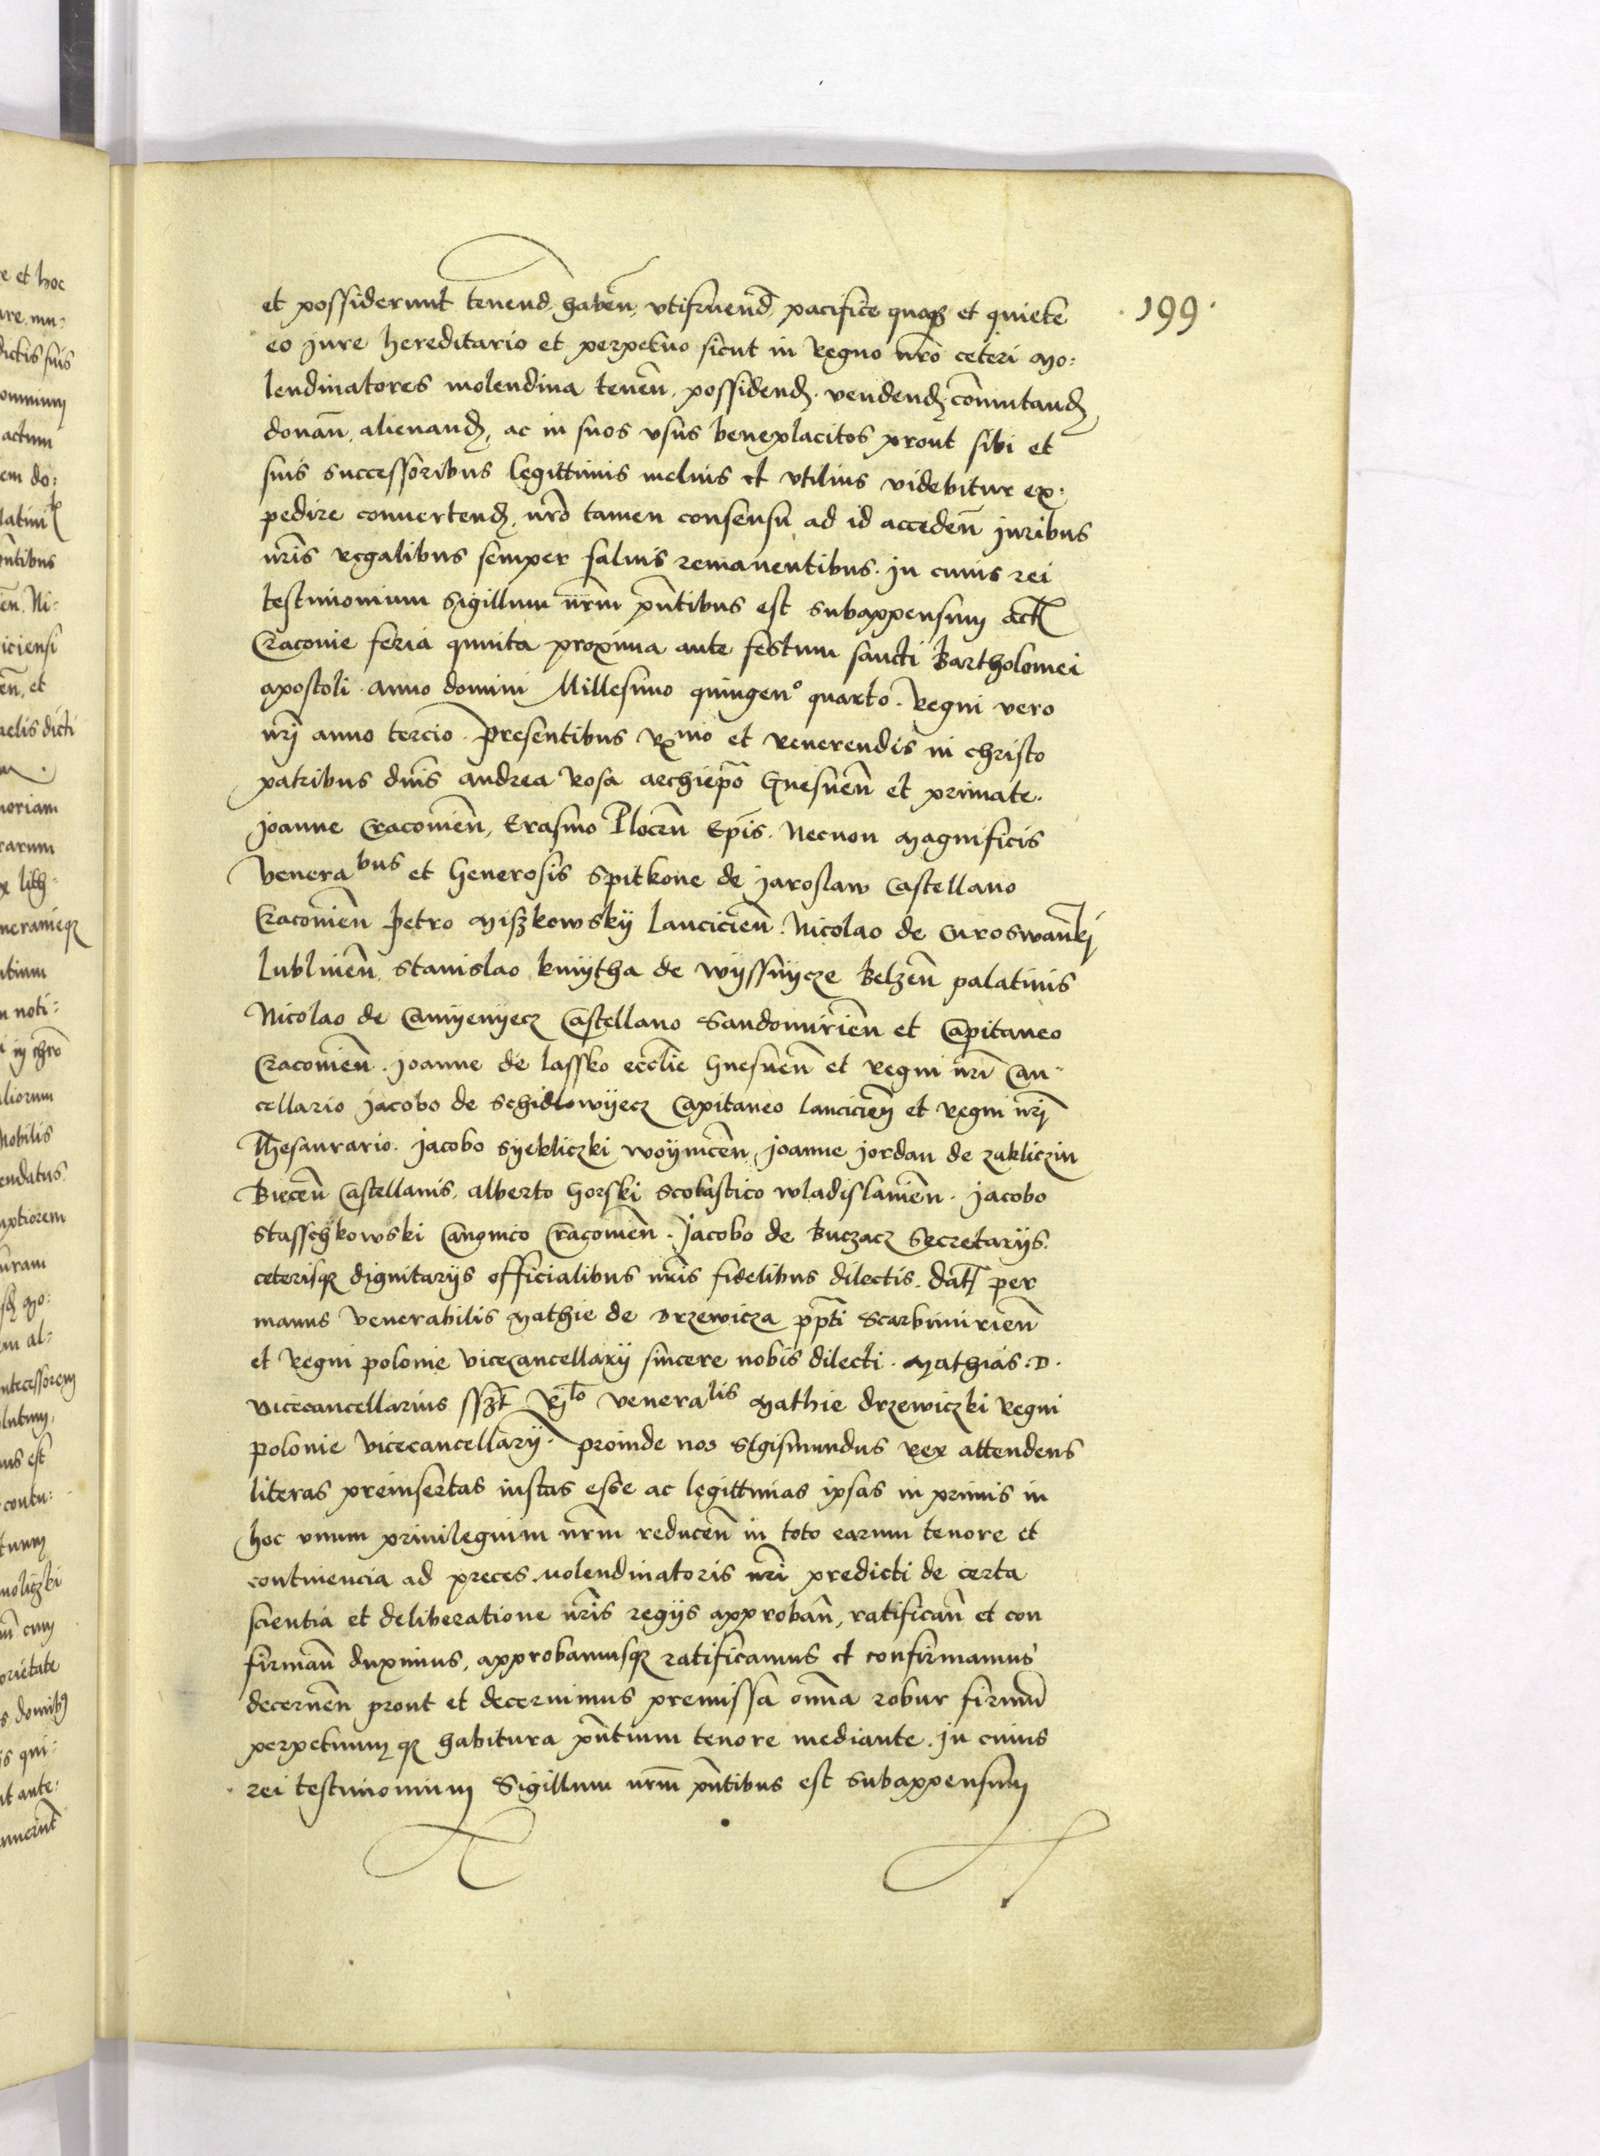 et possiderunt tenend. habeñ, vtifruend, pacifice quoqȝ et quiete
.199.
eo Jure hereditario et perpetuo sicut in Regno nr̃o ceteri Mo:
lendinatores molendina teneñ. possidendȝ. vendendȝ. com̃utandȝ
donañ, alienandȝ, ac in suos vsus beneplacitos prout sibi et
suis successoribus legittimis melius et vtilius videbitur ex:
pedire conuertendȝ, nr̃o tamen consensu ad id accedeñ Juribus
nr̃is Regalibus semper saluis remanentibus. In cuius rei
testimonium Sigillum nr̃m pñtibus est subappensum Act
Cracouie feria quinta proxima ante festum sancti Bartholomei
apostoli. Anno domini Millesimo quingen° quarto. Regni vero
nr̃j anno tercio. Presentibus Rxmo et Reuerendis in christo
patribus dnis Andrea Rosa archiep̃o Gnesneñ et primate.
Joanne Cracouieñ, Erasmo Plocen̄ Ep̃is. Necnon Magnificis
Venerabus et Generosis Spitkone de Jaroslaw Castellano
Cracouieñ Petro Mișzkowskij Lancicieñ. Nicolao de Curoswanki
Lublineñ, Stanislao kmijtha de Wijssnijcze Belzeñ palatinis
Nicolao de Camijenijecz Castellano Sandomirieñ et Capitaneo
Cracouieñ. Joanne de lassko eccl̃ie Gnesneñ et Regni nr̃i Can-
cellario Jacobo de Schidlowijecz Capitaneo Lancicieñ et Regni nr̃j
Thesaurario. Jacobo Sijekliczki Woijniceñ, Joanne Jordan de zakliczin
Bieceñ Castellanis. Alberto Gorski Scolastico Wladislauieñ. Jacobo
Stasschkowski Canonico Cracouieñ. Jacobo de Buczacz Secretarijs.
ceterisqȝ dignitarijs officialibus nr̃is fidelibus dilectis. Dat per
manus Venerabilis Mathie de Drzewicza pp̃ti Scarbimirieñ
et Regni polonie vicecancellarij sincere nobis dilecti. Mathias. D.
vicecancellarius sszt Rlo venerałis Mathie drzewiczki Regni
polonie vicecancellarij. Proinde nos Sigismundus Rex attendens
literas preinsertas iustas esse ac legittimas ipsas in primis in
hoc vnum priuilegium nr̃m reduceñ in toto earum tenore et
continencia ad preces Molendinatoris nr̃i predicti de certa
scientia et deliberatione nr̃is regijs approbañ, ratificañ et con
firmañ duximus, approbamusqȝ ratificamus et confirmamus
decerneñ prout et decernimus premissa om̃ia robur firmũ
perpetuum qȝ habitura pñtium tenore mediante. In cuius
rei testimonium Sigillum nr̃m pñtibus est subappensum